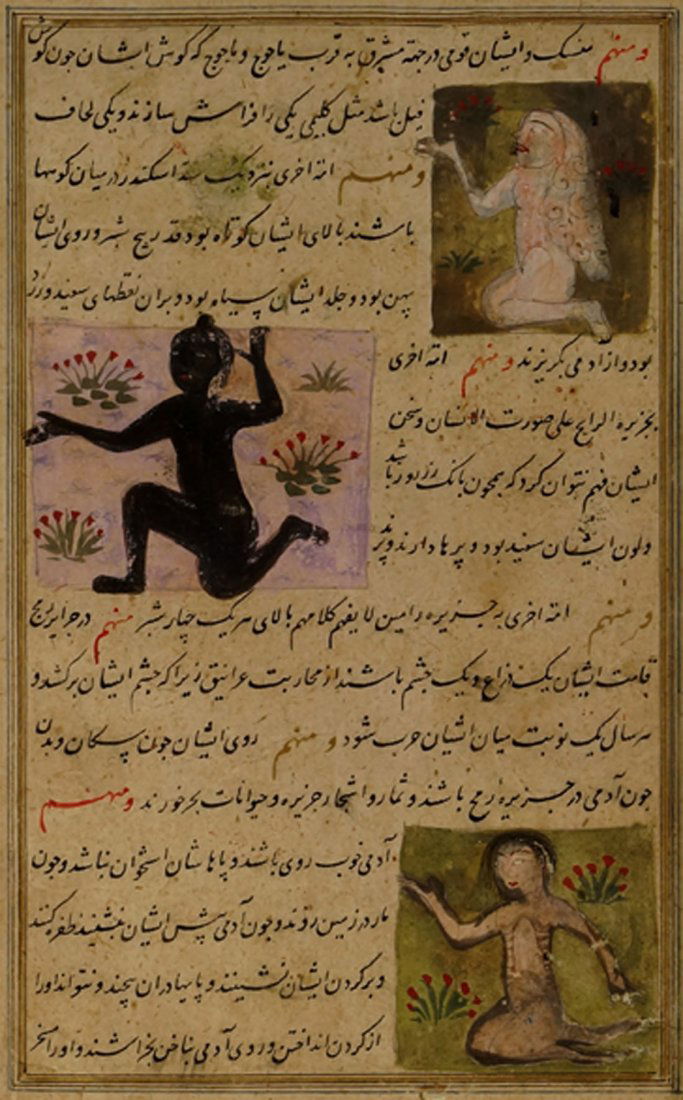 ومنهم منسک و ایشان قومی در جهة مشرق به قرب یاجوج و ماجوج که گوش ایشان جون گوش
فیل باشد مثل کلیمی یکی را فراش سازند و یکی لحاف
ومنهم امة اخری نزدیک سد اسکندر در میان کوهها
باشند بالای ایشان کوتاه بود قد ربح شبر و روی ایشان
پهن بود و جلد ایشان سیاه بود و بران نقطهای سفید و زرد
بود و از آدمی بگریزند ومنهم امة اخری
بجزیره الرایح علی صورت الانسان و سخن
ایشان فهم نتوان کرد که همجون بانک زنبور باشد
ولون ایشان سفید بود و پرها دارند و پرند
ومنهم امة اخری به جزیره رامین لا یفهم کلامهم بالای هر یک چهار شبر منهم در جزایر رمح
قامت ایشان یک ذراع و یک چشم باشند از محاربت غرانیق زیرا که چشم ایشان برکشد و
هر سال یک نوبت میان ایشان حرب شود ومنهم روی ایشان جون سکان و بدن
جون آدمی در جزیرهٔ رمح باشند و ثمار و اشجار جزیره و حیوانات بحر خورند ومنهم
آدمی خوب روی باشند و پاهاشان استخوان نباشد و جون
مار در زمین روند و جون آدمی پیش ایشان بنشیند طفره کنند
و بر کردن ایشان نشینند و پایها دران پیچند و نتواند او را
از کردن انداختن و روی آدمی بناخن بخراشند و او را مسخر